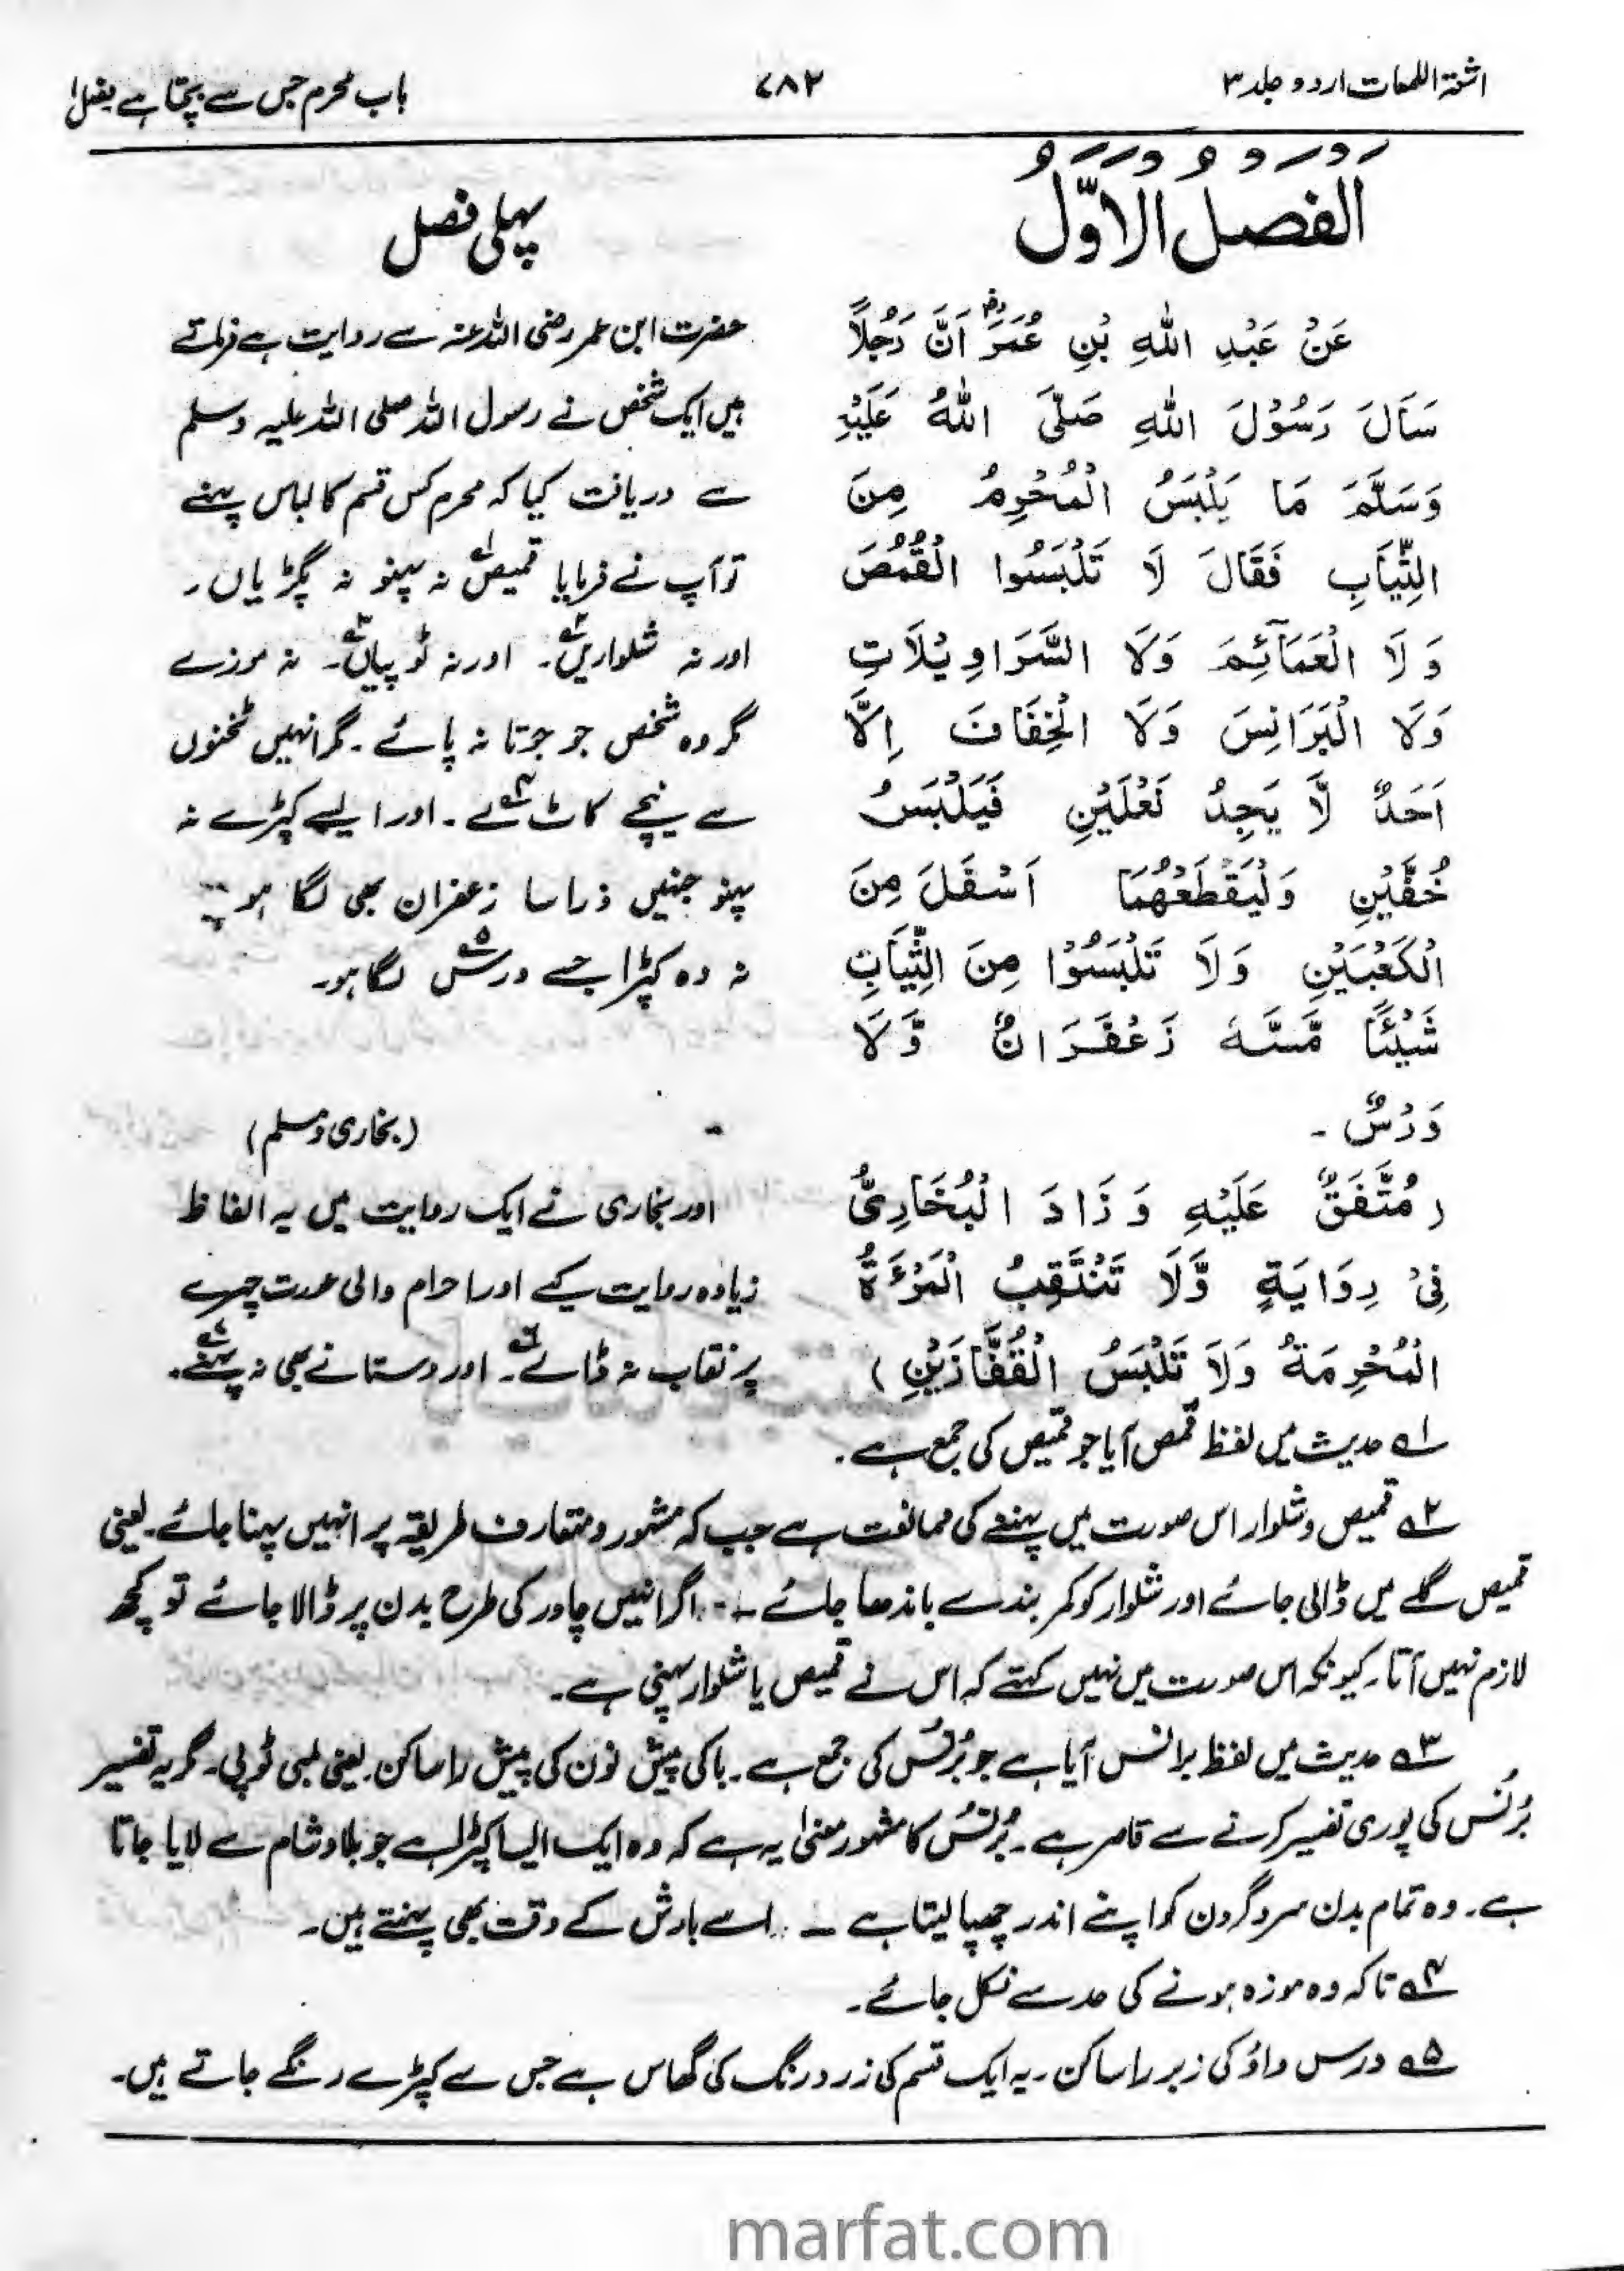 اشعۃ اللمعات اردو جلد ۳
۷۸۲
باب محرم جس سے بچتا ہے فصل ۱
اَلْفَصْلُ الْاَوَّلُ
عَنْ عَبْدِ اللّٰهِ بْنِ عُمَرَ ؓ اَنَّ رَجُلًا
سَاَلَ رَسُوْلَ اللّٰهِ صَلَّى اللّٰهُ عَلَيْهِ
وَسَلَّمَ مَا يَلْبَسُ الْمُحْرِمُ مِنَ
الثِّيَابِ فَقَالَ لَا تَلْبَسُوا الْقُمُصَ
وَلَا الْعَمَآئِمَ وَلَا السَّرَاوِيْلَاتِ
وَلَا الْبَرَانِسَ وَلَا الْخِفَافَ اِلَّا
اَحَدٌ لَّا يَجِدُ نَعْلَيْنِ فَيَلْبَسُ
خُفَّيْنِ وَلْيَقْطَعْهُمَا اَسْفَلَ مِنَ
الْكَعْبَيْنِ وَلَا تَلْبَسُوْا مِنَ الثِّيَابِ
شَيْئًا مَّسَّهٗ زَعْفَرَانٌ وَّلَا
وَرْسٌ ۔
(مُتَّفَقٌ عَلَيْهِ وَزَادَ الْبُخَارِىُّ
فِىْ رِوَايَةٍ وَّلَا تَنْتَقِبُ الْمَرْءَةُ
الْمُحْرِمَةُ وَلَا تَلْبَسُ الْقُفَّازَيْنِ)
پہلی فصل
حضرت ابن عمر رضی اللہ عنہ سے روایت ہے فرماتے
ہیں ایک شخص نے رسول اللہ صلی اللہ علیہ وسلم
سے دریافت کیا کہ محرم کس قسم کا لباس پہنے
تو آپ نے فرمایا قمیص۱؎ نہ پہنو نہ پگڑیاں ۔
اور نہ شلواریں۲؎۔ اور نہ ٹوپیاں۳؎۔ نہ موزے
مگر وہ شخص جو جوتا نہ پائے ۔ مگر انہیں ٹخنوں
سے نیچے کاٹ۴؎ لے ۔ اور ایسے کپڑے نہ
پہنو جنہیں ذرا سا زعفران بھی لگا ہو
نہ وہ کپڑا جسے ورس۵؎ لگا ہو۔
(بخاری ومسلم)
اور بخاری نے ایک روایت میں یہ الفاظ
زیادہ روایت کیے اور احرام والی عورت چہرے
پر نقاب نہ ڈالے۶؎۔ اور دستانے بھی نہ پہنے۷؎۔
۱؎ حدیث میں لفظ قمص آیا جو قمیص کی جمع ہے ۔
۲؎ قمیص و شلوار اس صورت میں پہننے کی ممانعت ہے جب کہ مشہور و متعارف طریقہ پر انہیں پہنا جائے ۔ یعنی
قمیص گلے میں ڈالی جائے اور شلوار کو کمر بند سے باندھا جائے ۔ اگر انہیں چادر کی طرح بدن پر ڈالا جائے تو کچھ
لازم نہیں آتا ۔ کیونکہ اس صورت میں نہیں کہتے کہ اس نے قمیص یا شلوار پہنی ہے ۔
۳؎ حدیث میں لفظ برانس آیا ہے جو بُرنُس کی جمع ہے ۔ با کی پیش نون کی پیش را ساکن ۔ یعنی لمبی ٹوپی ۔ مگر یہ تفسیر
بُرنُس کی پوری تفسیر کرنے سے قاصر ہے ۔ بُرنُس کا مشہور معنیٰ یہ ہے کہ وہ ایک ایسا کپڑا ہے جو بلاد شام سے لایا جاتا
ہے ۔ وہ تمام بدن سر و گردن کو اپنے اندر چھپا لیتا ہے ۔ اسے بارش کے وقت بھی پہنتے ہیں ۔
۴؎ تاکہ وہ موزہ ہونے کی حد سے نکل جائے ۔
۵؎ ورس واؤ کی زبر را ساکن ۔ یہ ایک قسم کی زرد رنگ کی گھاس ہے جس سے کپڑے رنگے جاتے ہیں ۔
marfat.com